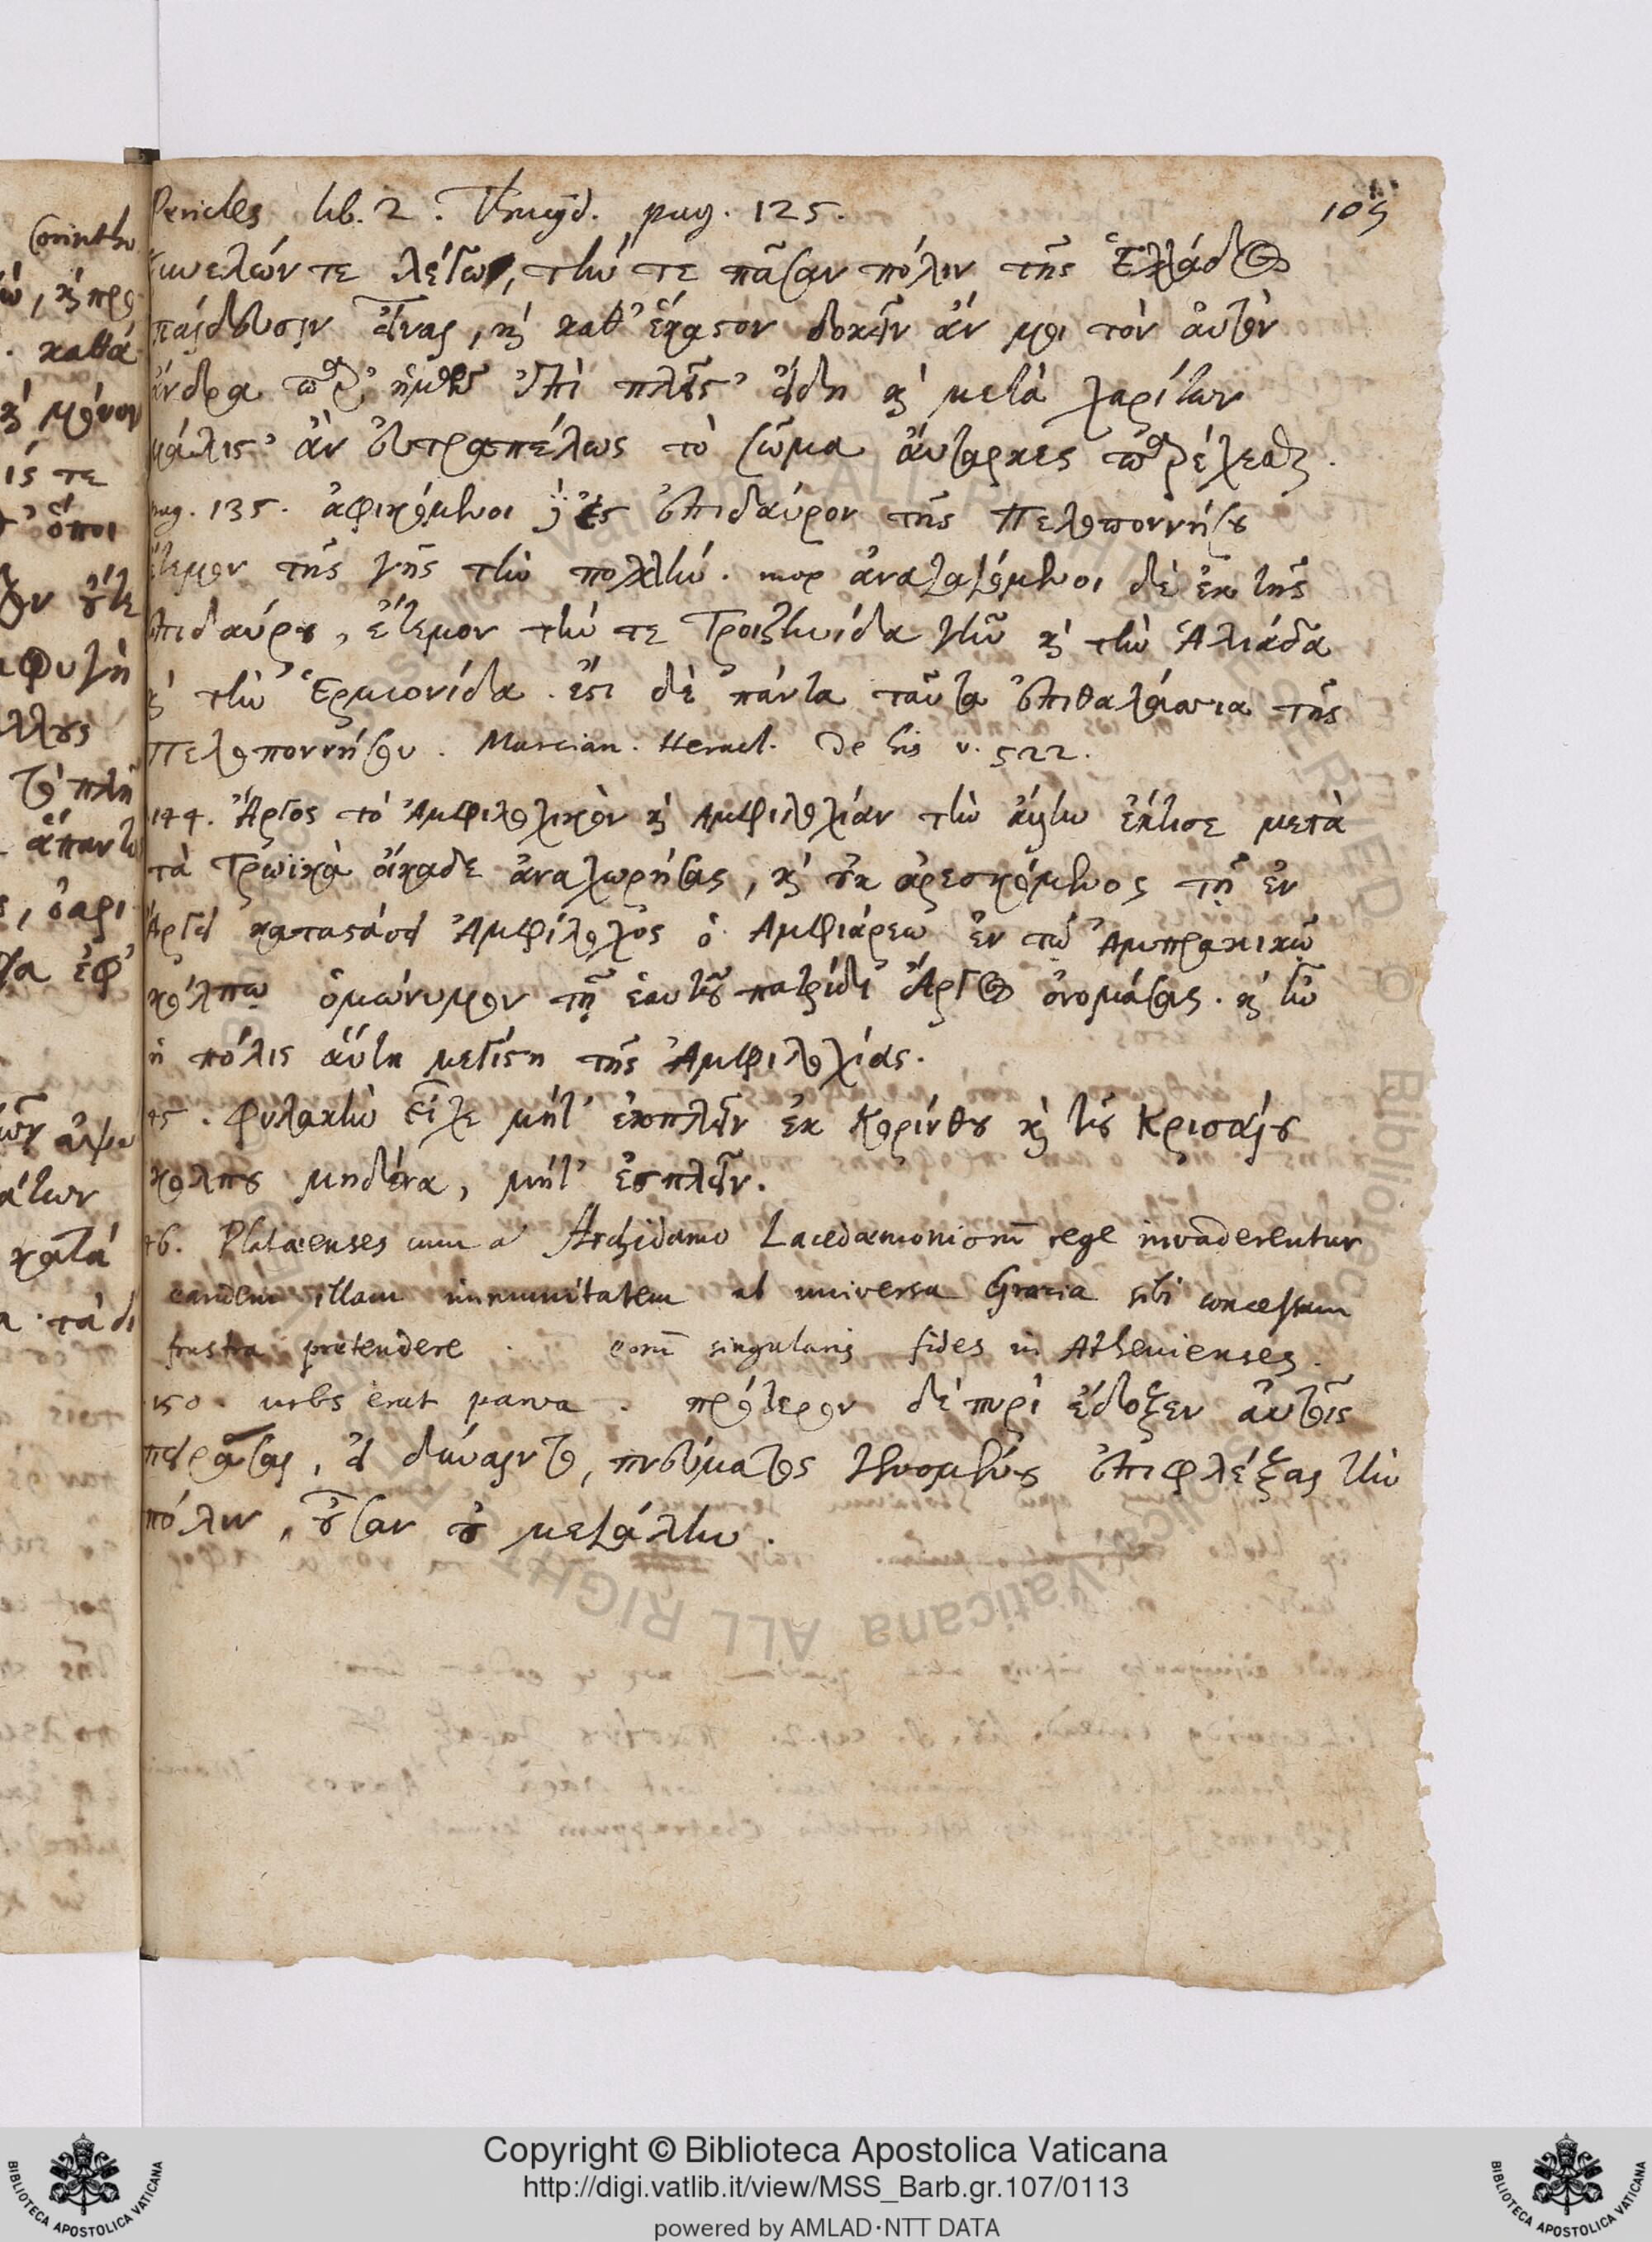 Pericles lib. 2. Thucyd. pag. 125. 105
ξυνελών τε λέγω, τὴν τε πᾶσαν πόλιν τῆς Ἑλλάδος
παίδευσιν εἶναι, καὶ καθ' ἕκαστον δοκεῖν ἄν μοι τὸν αὐτὸν
ἄνδρα παρ' ἡμῶν ἐπὶ πλεῖστ' εἴδη καὶ μετὰ χαρίτων
μάλιστ' ἂν εὐτραπέλως τὸ σῶμα αὔταρκες παρέχεσθαι.
pag. 135. ἀφικόμενοι ἐς Ἐπιδαύρον τῆς Πελοποννήσου
ἔτεμον τῆς γῆς τὴν πολλήν. mox ἀναγαγόμενοι δὲ ἐκ τῆς
Ἐπιδαύρου, ἔτεμον τήν τε Τροιζηνίδα γῆν καὶ τὴν Ἁλιάδα
καὶ τὴν Ἑρμιονίδα. ἔστι δὲ πάντα ταῦτα ἐπιθαλάσσια τῆς
Πελοποννήσου. Marcian. Heracl. de his v. 522.
144. Ἄργος τὸ Ἀμφιλοχικὸν καὶ Ἀμφιλοχίαν τὴν ἄλλην ἔκτισε μετὰ
τὰ Τρωϊκὰ οἴκαδε ἀναχωρήσας, καὶ οὐκ ἀρεσκόμενος τῇ ἐν
Ἄργει καταστάσει Ἀμφίλοχος ὁ Ἀμφιάρεω ἐν τῷ Ἀμπρακικῷ
κόλπῳ ὁμώνυμον τῇ ἑαυτοῦ πατρίδι Ἄργος ὀνομάσας. καὶ ἦν
ἡ πόλις αὕτη μεγίστη τῆς Ἀμφιλοχίας.
45. φυλακὴν εἶχε μήτ' ἐκπλεῖν ἐκ Κορίνθου καὶ τοῦ Κρισαίου
κόλπου μηδένα, μήτ' ἐσπλεῖν.
46. Plataeenses cum a Archidamo Lacedaemoniorum rege invaderentur
eandem illam immunitatem ab universa Graecia sibi concessam
frustra pretendere. eorum singularis fides in Athenienses.
150. urbs erat parva. πρότερον δὲ πυρὶ ἔδοξεν αὐτοῖς
πειρᾶσαι, εἰ δύναιντο, πνεύματος γενομένου ἐπιφλέξαι τὴν
πόλιν, οὖσαν οὐ μεγάλην.
Copyright © Biblioteca Apostolica Vaticana
http://digi.vatlib.it/view/MSS_Barb.gr.107/0113
powered by AMLAD·NTT DATA